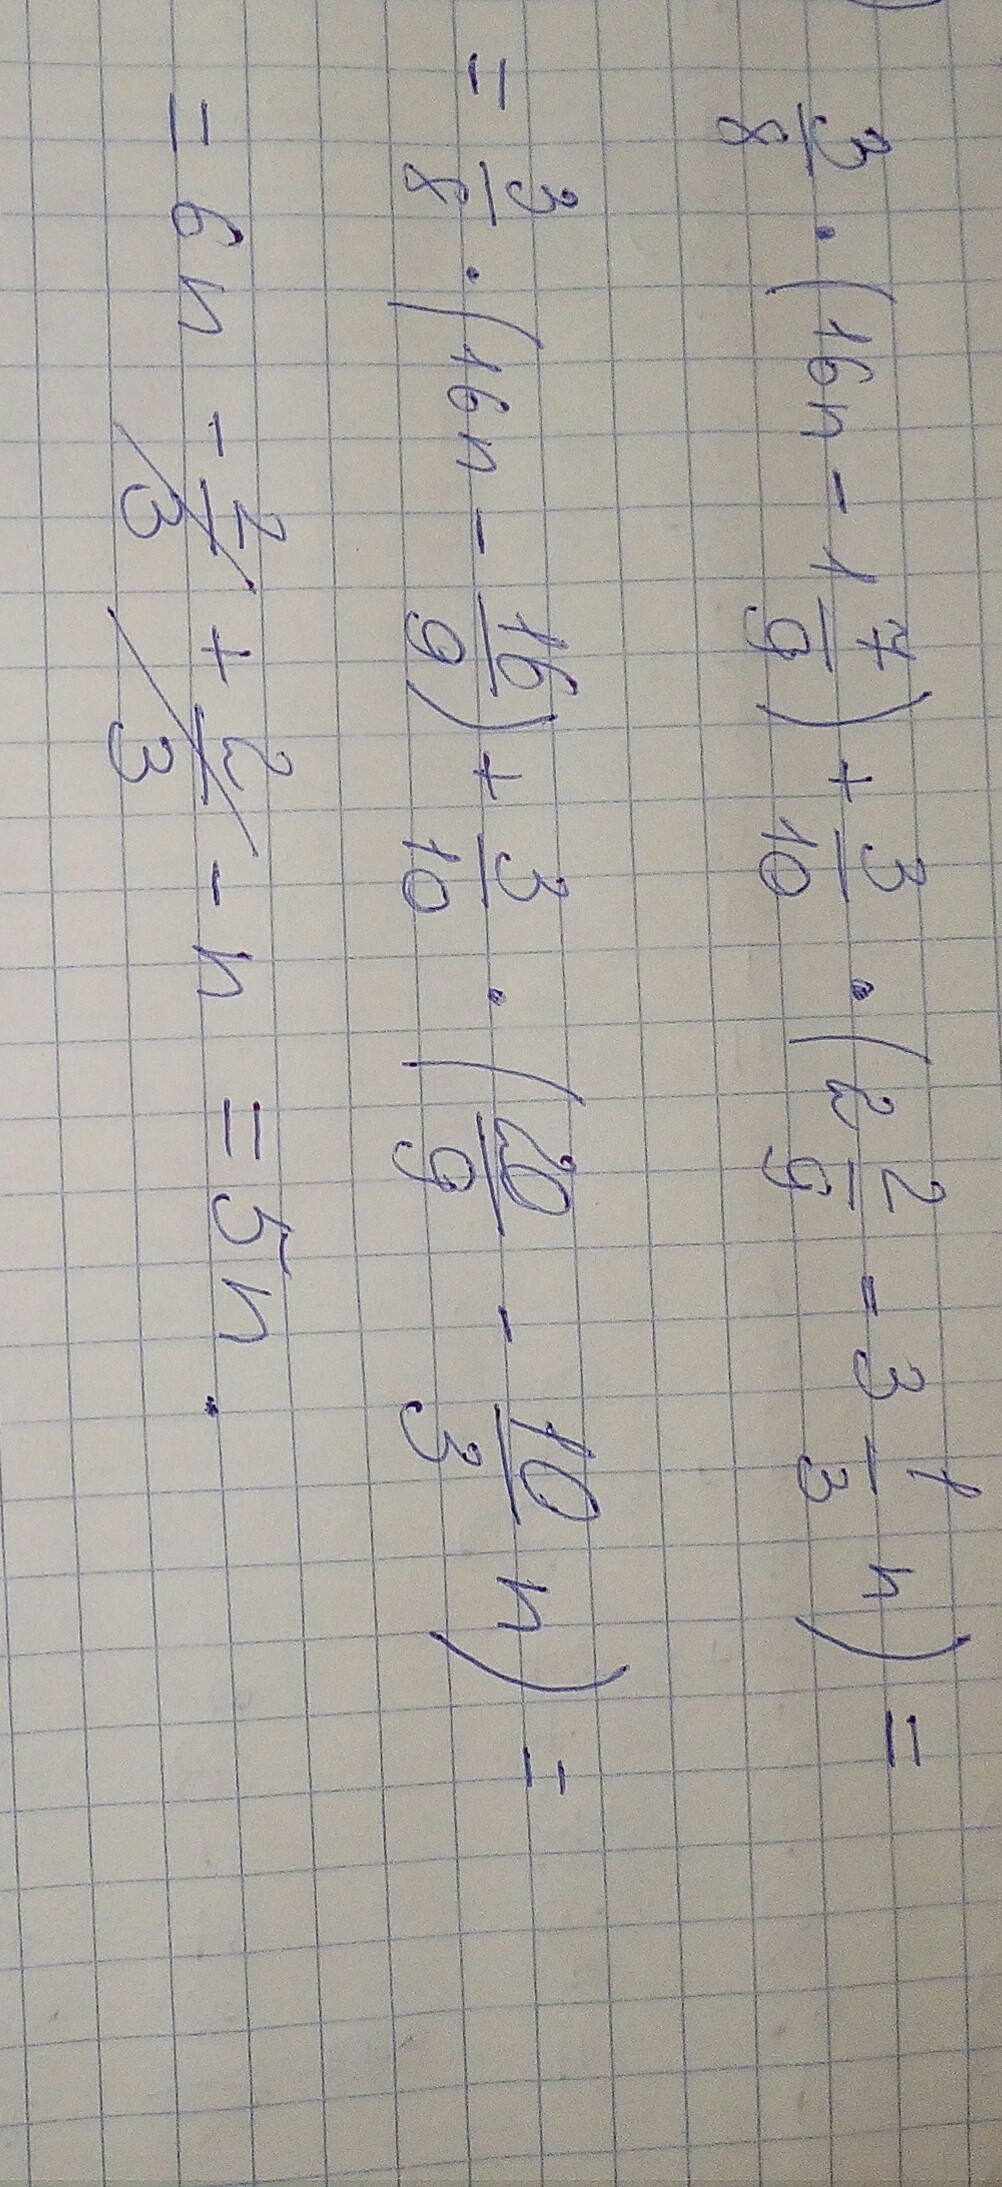 3/8 · (16n - 1 7/9) + 3/10 · (2 2/9 - 3 1/3 n) =
= 3/8 · (16n - 16/9) + 3/10 · (20/9 - 10/3 n) =
= 6n - 2/3 + 2/3 - n = 5n.